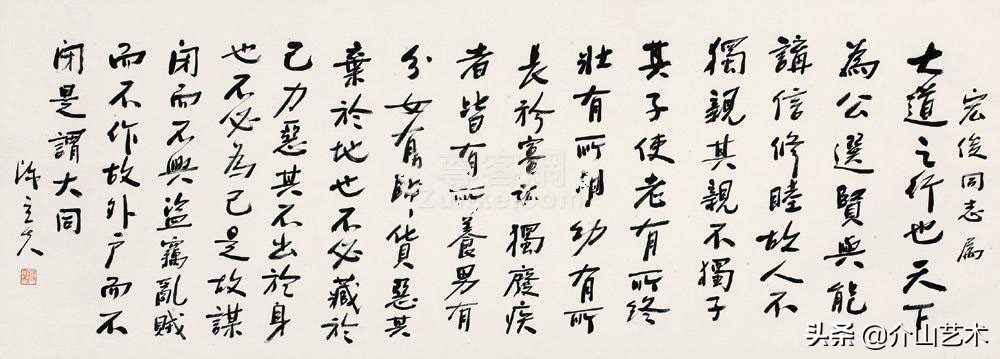 宏俊同志属
大道之行也天下
為公選賢與能
講信修睦故人不
獨親其親不獨子
其子使老有所終
壯有所用幼有所
長矜寡孤獨廢疾
者皆有所養男有
分女有歸貨惡其
棄於地也不必藏於
己力惡其不出於身
也不必為己是故謀
闭而不興盜竊亂賊
而不作故外户而不
闭是謂大同
陳立夫
头条 @介山艺术